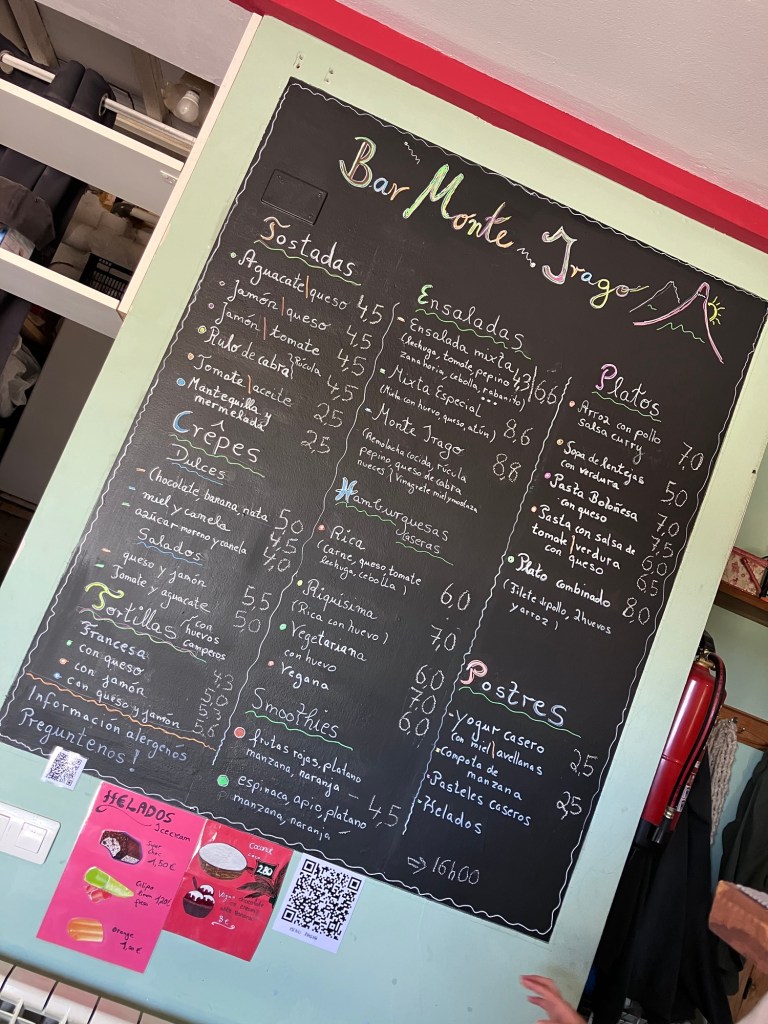 Bar Monte Irago
Tostadas
Aguacate/queso 4,5
Jamón/queso 4,5
Jamón/tomate 4,5
Rulo de cabra /Rúcula 4,5
Tomate/aceite 2,5
Mantequilla y
mermelada 2,5
Crêpes
Dulces
- Chocolate, banana, nata 5,0
- miel y canela 4,5
- azúcar moreno y canela 4,0
Salados
- queso y jamón 5,5
- Tomate y aguacate 5,0
Tortillas con
huevos
camperos
Francesa 4,3
con queso 5,0
con jamón
con queso y jamón 5,6
Información alergenós
Preguntenos!
Ensaladas
- Ensalada mixta 4,3/6,6
(lechuga, tomate, pepino
zanahoria, cebolla, rabanito)
- Mixta Especial 8,6
(Mixta con huevo, queso, atún)
- Monte Irago 8,8
(Remolacha cocida, rúcula
pepino, queso de cabra
nueces / Vinagrete miel y mostaza
Hamburguesas
caseras
Rica 6,0
(carne, queso tomate
lechuga, cebolla)
Riquísima 7,0
(Rica con huevo)
Vegetariana 6,0
con huevo 7,0
Vegana 6,0
Smoothies
frutas rojas, platano
manzana, naranja -
espinaca, apio, platano 4,5
manzana, naranja -
Platos
Arroz con pollo 7,0
salsa curry
Sopa de lentejas 5,0
con verdura
Pasta Boloñesa 7,0
con queso 7,5
Pasta con salsa de
tomate/verdura 6,0
con queso 6,5
Plato combinado 8,0
(Filete de pollo, 2 huevos
y arroz)
Postres
Yogur casero 2,5
con miel/avellanas
Compota de
manzana 2,5
Pasteles caseros
Helados
⇒ 16h00
HELADOS
Icecream
1,50€
1,20€
Orange
1,00€
Coconut
2,80
3€